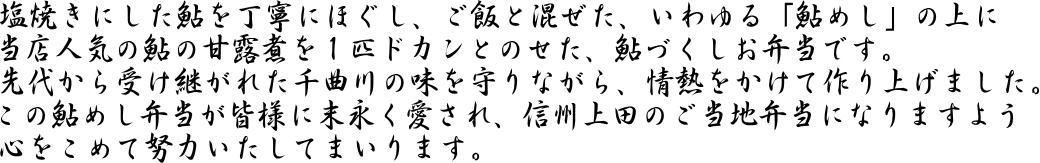 塩焼きにした鮎を丁寧にほぐし、ご飯と混ぜた、いわゆる「鮎めし」の上に
当店人気の鮎の甘露煮を1匹ドカンとのせた、鮎づくしお弁当です。
先代から受け継がれた千曲川の味を守りながら、情熱をかけて作り上げました。
この鮎めし弁当が皆様に末永く愛され、信州上田のご当地弁当になりますよう
心をこめて努力いたしてまいります。